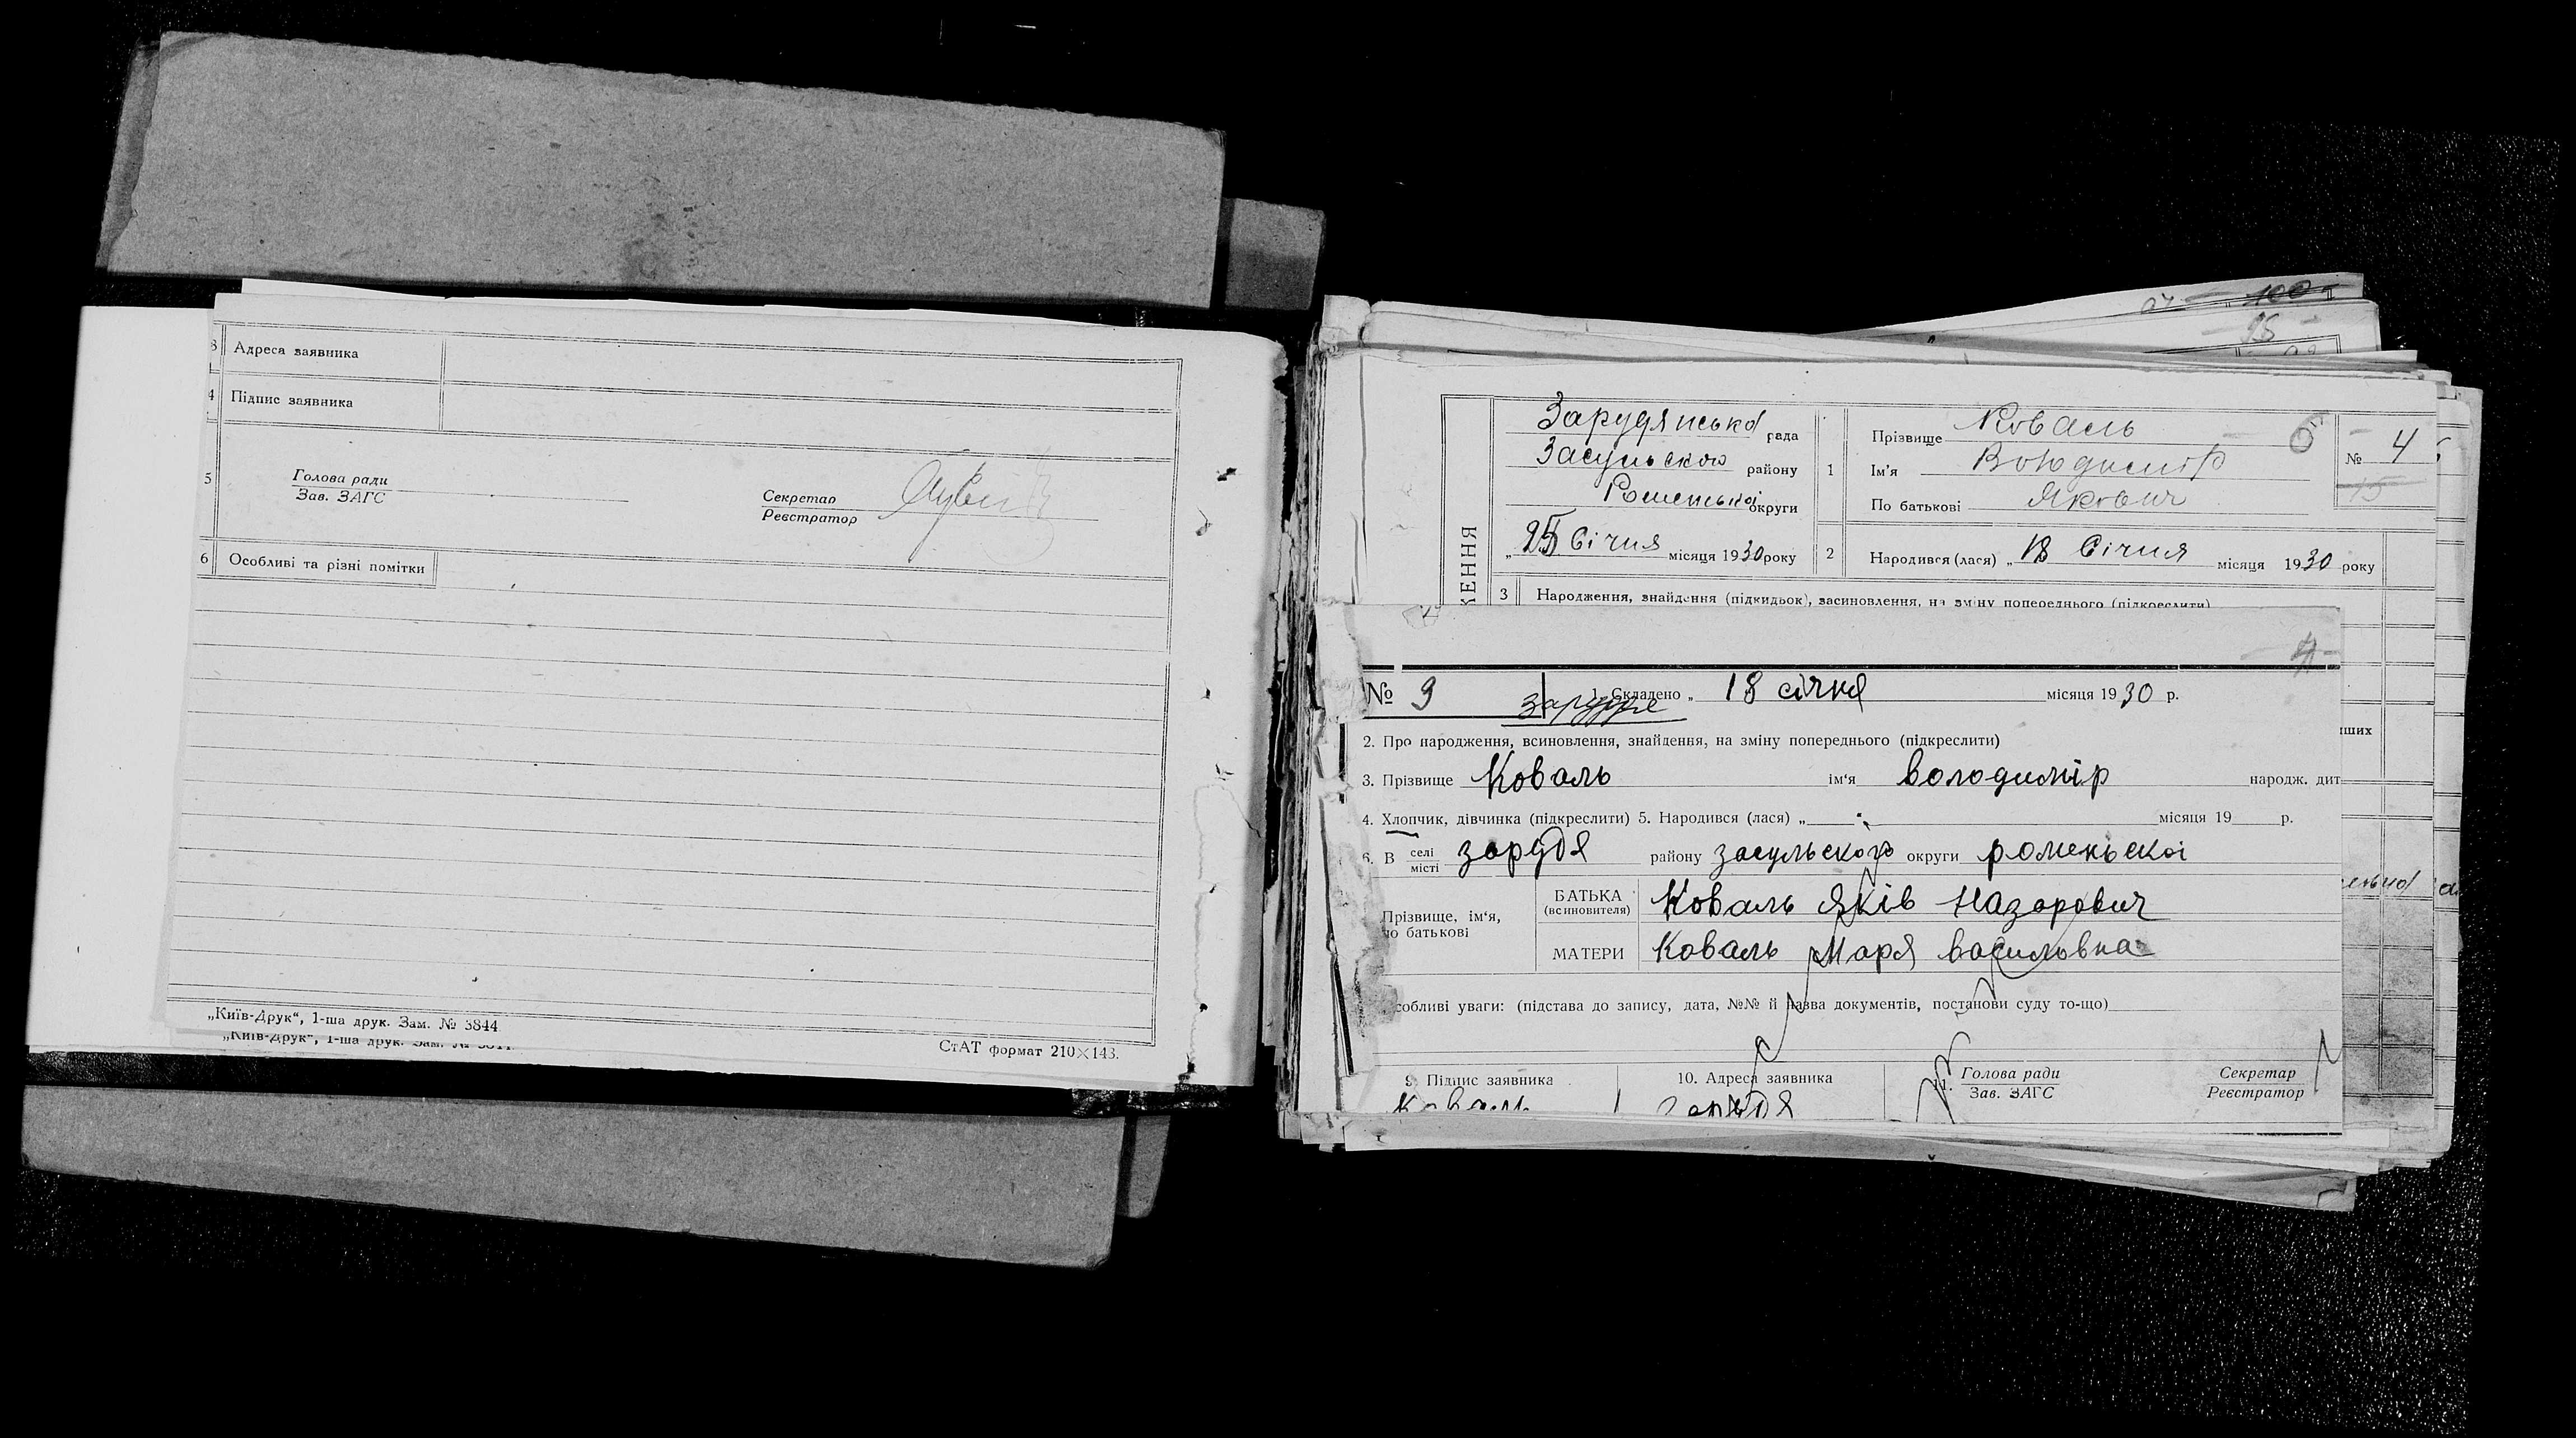 3 Адреса заявника
4 Підпис заявника
5 Голова ради
Зав. ЗАГС
Секретар
Реєстратор
6 Особливі та різні помітки
„Київ-Друк“, 1-ша друк. Зам. № 3844
„Київ-Друк“, 1-ша друк. Зам. №
СтАТ формат 210×143.
100
95
Зарудянська рада
Засульского району
Роменської округи
„25 Січня місяця 1930 року
1 Прізвище Коваль
Ім'я Володимір
По батькові Якович
№ 4
15
2 Народився (лася) „18 Січня місяця 1930 року
ЖЕННЯ
3 Народження, знайдення (підкидьок), засиновлення, на зміну попереднього (підкреслити)
4
№ 9
1. Складено „ 18 січня місяця 1930 р.
зарудя
2. Про народження, всиновлення, знайдення, на зміну попереднього (підкреслити)
3. Прізвище Коваль ім‘я володимір народж. дит
4. Хлопчик, дівчинка (підкреслити) 5. Народився (лася) „ “ місяця 19 р.
6. В селі
місті
зарудя району засульского округи роменьскоі
Прізвище, ім‘я,
по батькові
БАТЬКА
(всиновителя)
Коваль Яків Назарович
МАТЕРИ Коваль Маря василовна
собливі уваги: (підстава до запису, дата, №№ й назва документів, постанови суду то-що)
9. Підпис заявника
Коваль
10. Адреса заявника
зарудя
11. Голова ради
Зав. ЗАГС
Секретар
Реєстратор
нших